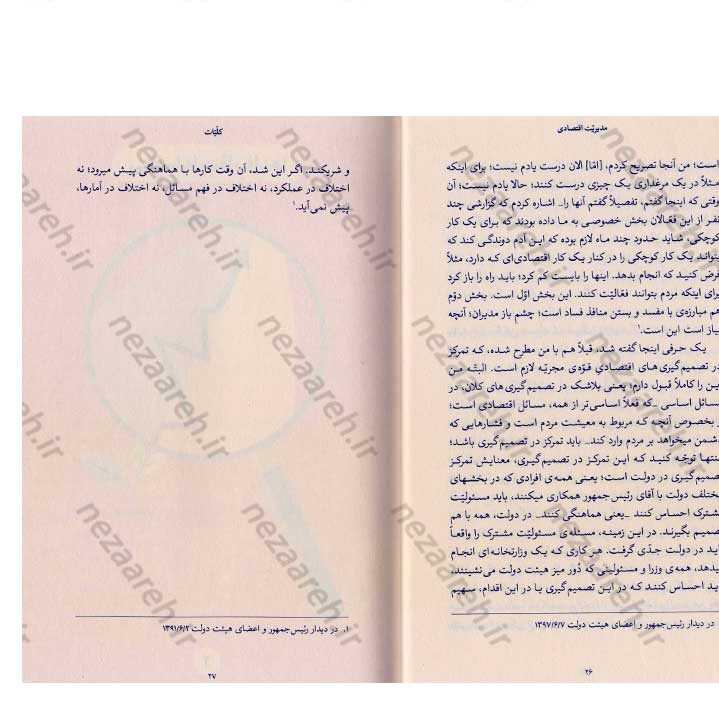 مدیریّت اقتصادی
است؛ من آنجا تصریح کردم، [امّا] الان درست یادم نیست؛ برای اینکه
مثلاً در یک مرغداری یک چیزی درست کنند؛ حالا یادم نیست؛ آن
وقتی که اینجا گفتم، تفصیلاً گفتم آنها را_ اشاره کردم که گزارشی چند
نفر از این فعّالان بخش خصوصی به ما داده بودند که برای یک کار
کوچکی، شاید حدود چند ماه لازم بوده که این آدم دوندگی کند که
بتواند یک کار کوچکی را در کنار یک کار اقتصادی‌ای که دارد، مثلاً
فرض کنید که انجام بدهد. اینها را بایست کم کرد؛ باید راه را باز کرد
برای اینکه مردم بتوانند فعّالیّت کنند. این بخش اوّل است. بخش دوّم
هم مبارزه‌ی با مفسد و بستن منافذ فساد است؛ چشم باز مدیران؛ آنچه
نیاز است این است.۱
یک حرفی اینجا گفته شد، قبلاً هم با من مطرح شده، که تمرکز
در تصمیم‌گیری‌های اقتصادیِ قوّه‌ی مجریّه لازم است. البتّه من
این را کاملاً قبول دارم؛ یعنی بلاشک در تصمیم‌گیری‌های کلان، در
مسائل اساسی _که فعلاً اساسی‌تر از همه، مسائل اقتصادی است؛
و بخصوص آنچه که مربوط به معیشت مردم است و فشارهایی که
دشمن میخواهد بر مردم وارد کند_ باید تمرکز در تصمیم‌گیری باشد؛
منتها توجّه کنید که این تمرکز در تصمیم‌گیری، معنایش تمرکز
تصمیم‌گیری در دولت است؛ یعنی همه‌ی افرادی که در بخشهای
مختلف دولت با آقای رئیس‌جمهور همکاری میکنند، باید مسئولیّت
مشترک احساس کنند _یعنی هماهنگی کنند_ در دولت، همه با هم
تصمیم بگیرند. در این زمینه، مسئله‌ی مسئولیّت مشترک را واقعاً
باید در دولت جدّی گرفت. هر کاری که یک وزارتخانه‌ای انجام
میدهد، همه‌ی وزرا و مسئولینی که دُور میز هیئت دولت می‌نشینند،
باید احساس کنند که در این تصمیم‌گیری یا در این اقدام، سهیم
در دیدار رئیس‌جمهور و اعضای هیئت دولت ۱۳۹۷/۶/۷
۲۶
کلّیّات
و شریکند. اگر این شد، آن وقت کارها با هماهنگی پیش میرود؛ نه
اختلاف در عملکرد، نه اختلاف در فهم مسائل، نه اختلاف در آمارها،
پیش نمی‌آید.۱
۱. در دیدار رئیس‌جمهور و اعضای هیئت دولت ۱۳۹۱/۶/۲
۲۷
nezaareh.ir
nezaareh.ir
nezaareh.ir
nezaareh.ir
nezaareh.ir
nezaareh.ir
nezaareh.ir
nezaareh.ir
nezaareh.ir